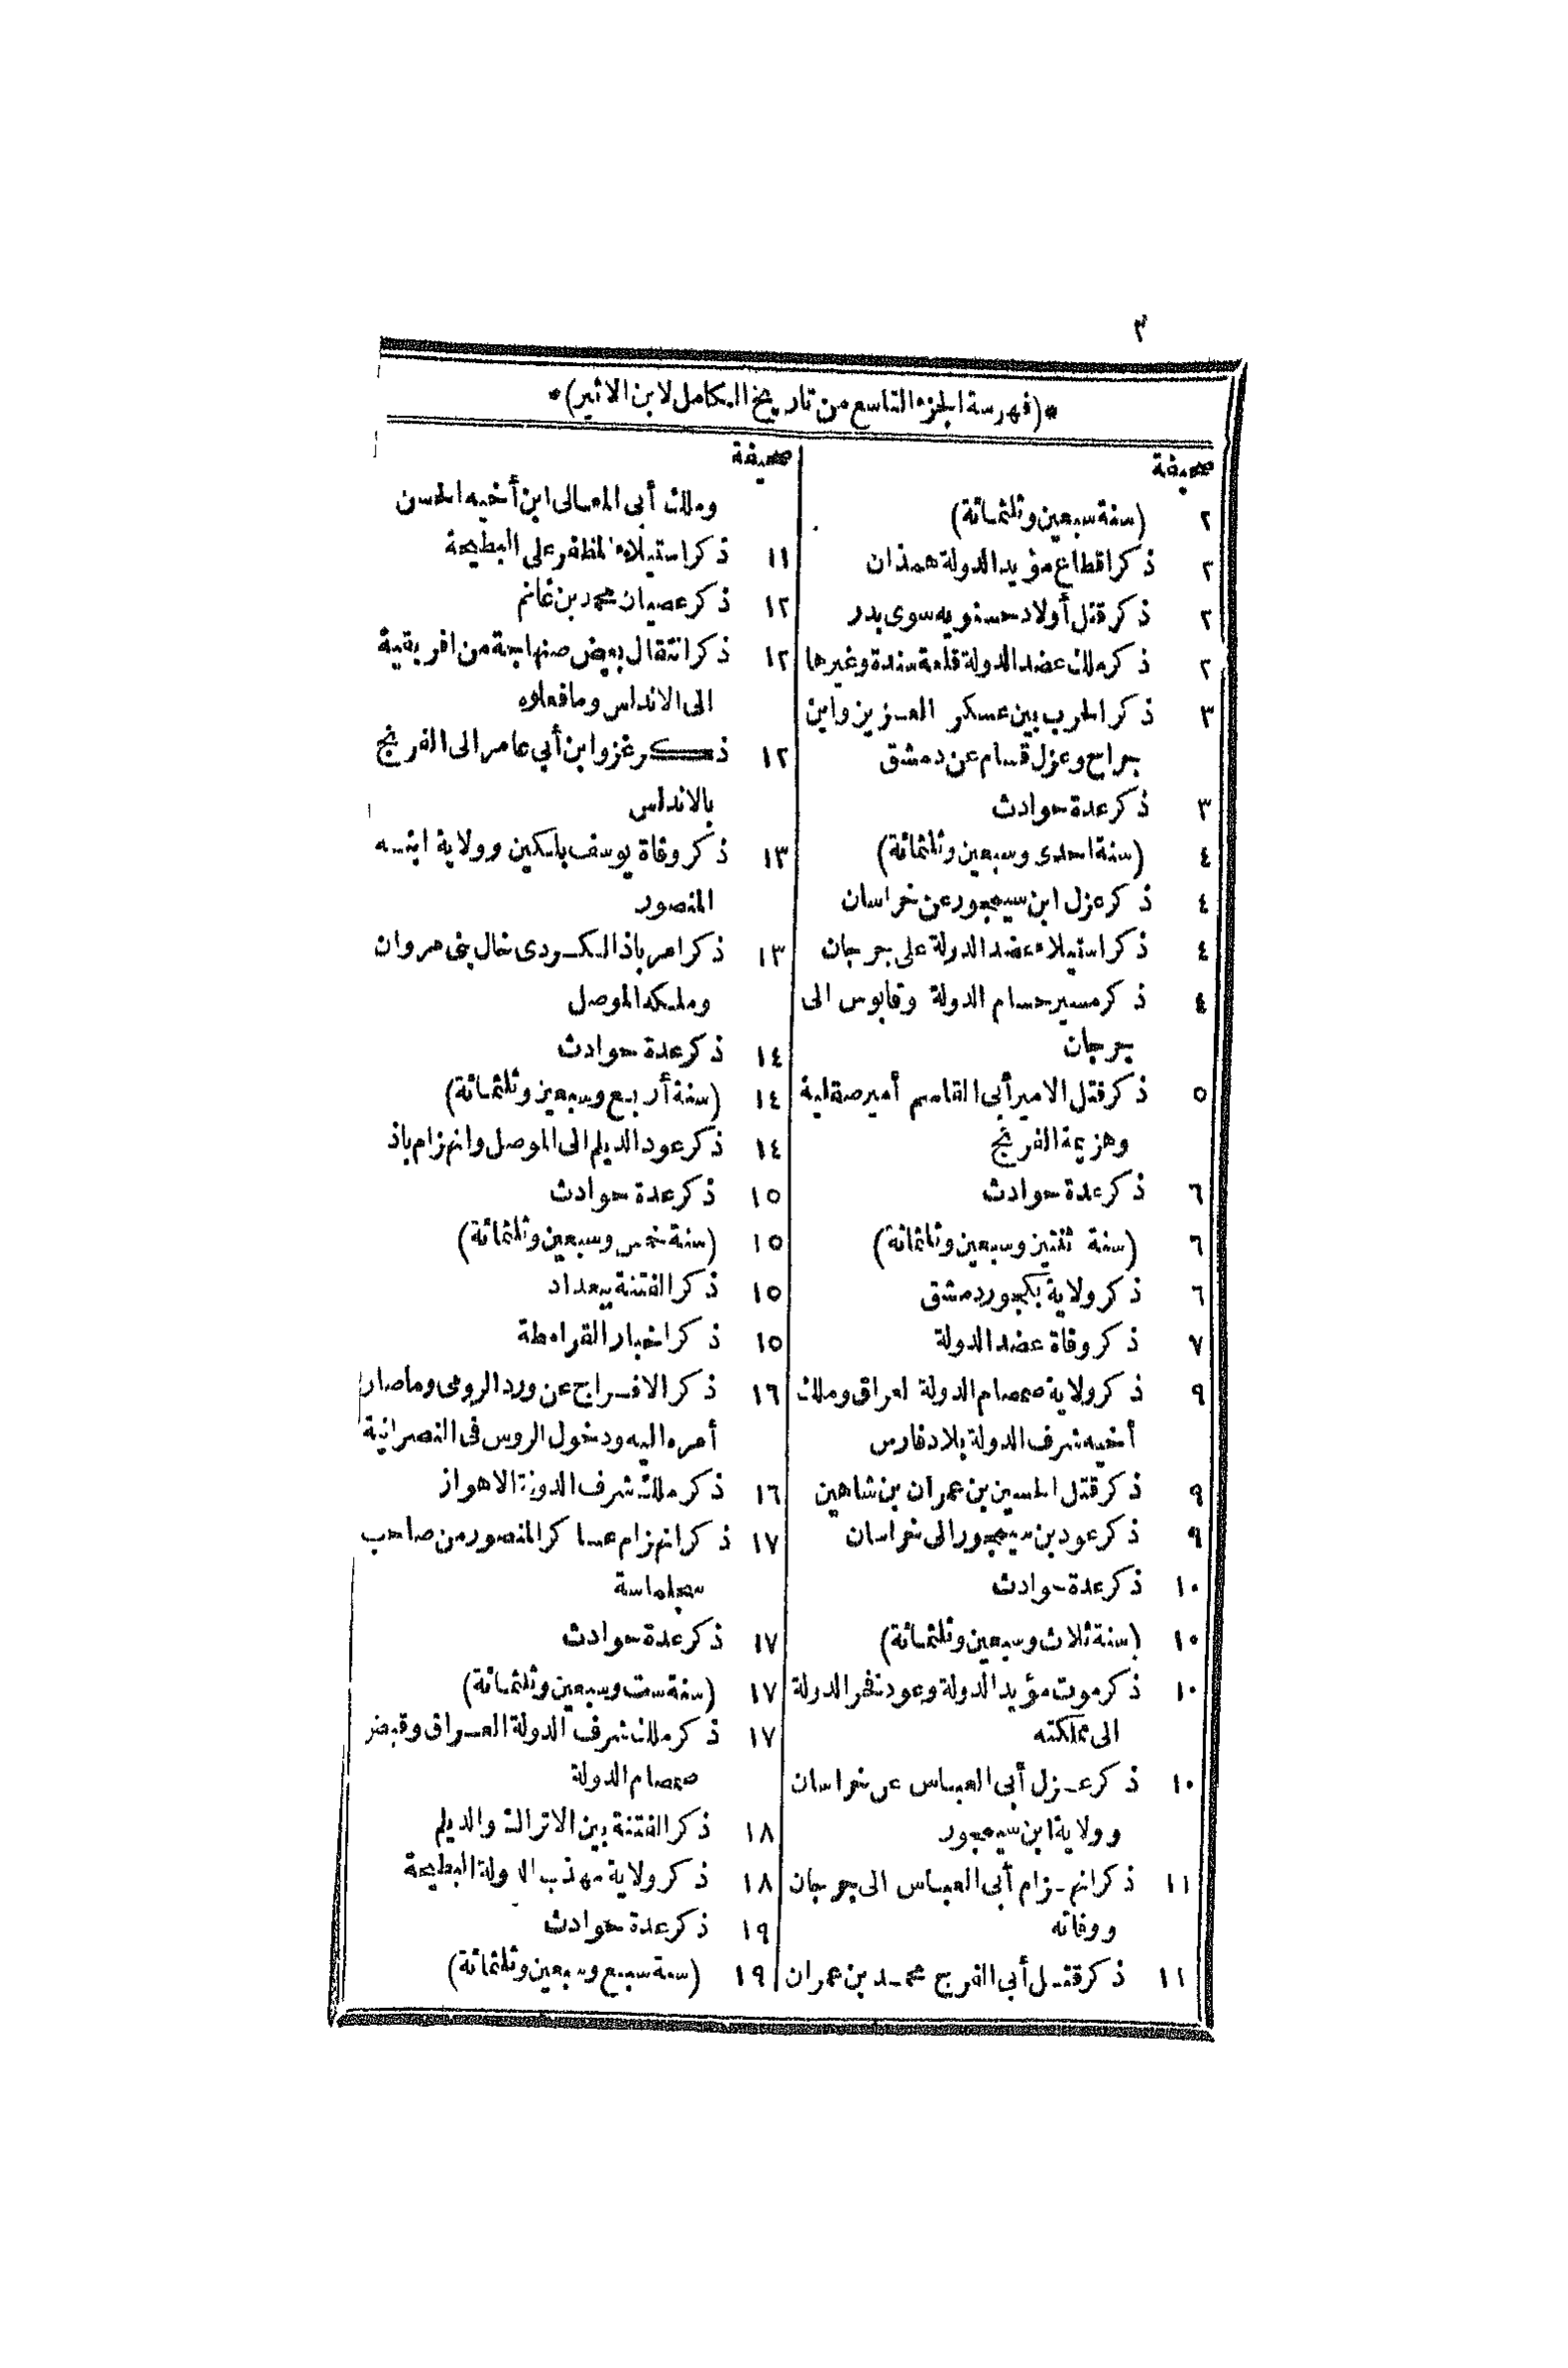 ٣
*(فهرسة الجزء التاسع من تاريخ الكامل لابن الاثير)*
صحيفة
٢ (سنة سبعين وثلثمائة)
٢ ذكر اقطاع مؤيد الدولة همذان
٢ ذكر قتل أولاد حسنويه سوى بدر
٢ ذكر ملك عضد الدولة قلعة سندة وغيرها
٣ ذكر الحرب بين عسكر العزيز وابن
جراح وعزل قسام عن دمشق
٣ ذكر عدة حوادث
٤ (سنة احدى وسبعين وثلثمائة)
٤ ذكر عزل ابن سيمجور عن خراسان
٤ ذكر استيلاء عضد الدولة على جرجان
٤ ذكر مسير حسام الدولة وقابوس الى
جرجان
٥ ذكر قتل الامير أبى القاسم أمير صقلية
وهزيمة الفرنج
٦ ذكر عدة حوادث
٦ (سنة ثنتين وسبعين وثلثمائة)
٦ ذكر ولاية بكجور دمشق
٧ ذكر وفاة عضد الدولة
٩ ذكر ولاية صمصام الدولة العراق وملك
أخيه شرف الدولة بلاد فارس
٩ ذكر قتل الحسين بن عمران بن شاهين
٩ ذكر عود بن سيمجور الى خراسان
١٠ ذكر عدة حوادث
١٠ (سنة ثلاث وسبعين وثلثمائة)
١٠ ذكر موت مؤيد الدولة وعود فخر الدولة
الى مملكته
١٠ ذكر عزل أبى العباس عن خراسان
وولاية ابن سيمجور
١١ ذكر انهزام أبى العباس الى جرجان
ووفاته
١١ ذكر قتل أبى الفرج محمد بن عمران
صحيفة
وملك أبى المعالى ابن أخيه الحسن
١١ ذكر استيلاء المظفر على البطيحة
١٢ ذكر عصيان محمد بن غانم
١٢ ذكر انتقال بعض صنهاجة من افريقية
الى الاندلس وما فعلوه
١٢ ذكر غزو ابن أبي عامر الى الفرنج
بالاندلس
١٣ ذكر وفاة يوسف بلكين وولاية ابنه
المنصور
١٣ ذكر امر باذ الكردى خال بنى مروان
وملكه الموصل
١٤ ذكر عدة حوادث
١٤ (سنة أربع وسبعين وثلثمائة)
١٤ ذكر عود الديلم الى الموصل وانهزام باذ
١٥ ذكر عدة حوادث
١٥ (سنة خمس وسبعين وثلثمائة)
١٥ ذكر الفتنة ببغداد
١٥ ذكر اخبار القرامطة
١٦ ذكر الافراج عن ورد الرومى وما صار
أمره اليه ودخول الروس فى النصرانية
١٦ ذكر ملك شرف الدولة الاهواز
١٧ ذكر انهزام عساكر المنصور من صاحب
سجلماسة
١٧ ذكر عدة حوادث
١٧ (سنة ست وسبعين وثلثمائة)
١٧ ذكر ملك شرف الدولة العراق وقبض
صمصام الدولة
١٨ ذكر الفتنة بين الاتراك والديلم
١٨ ذكر ولاية مهذب الدولة البطيحة
١٩ ذكر عدة حوادث
١٩ (سنة سبع وسبعين وثلثمائة)